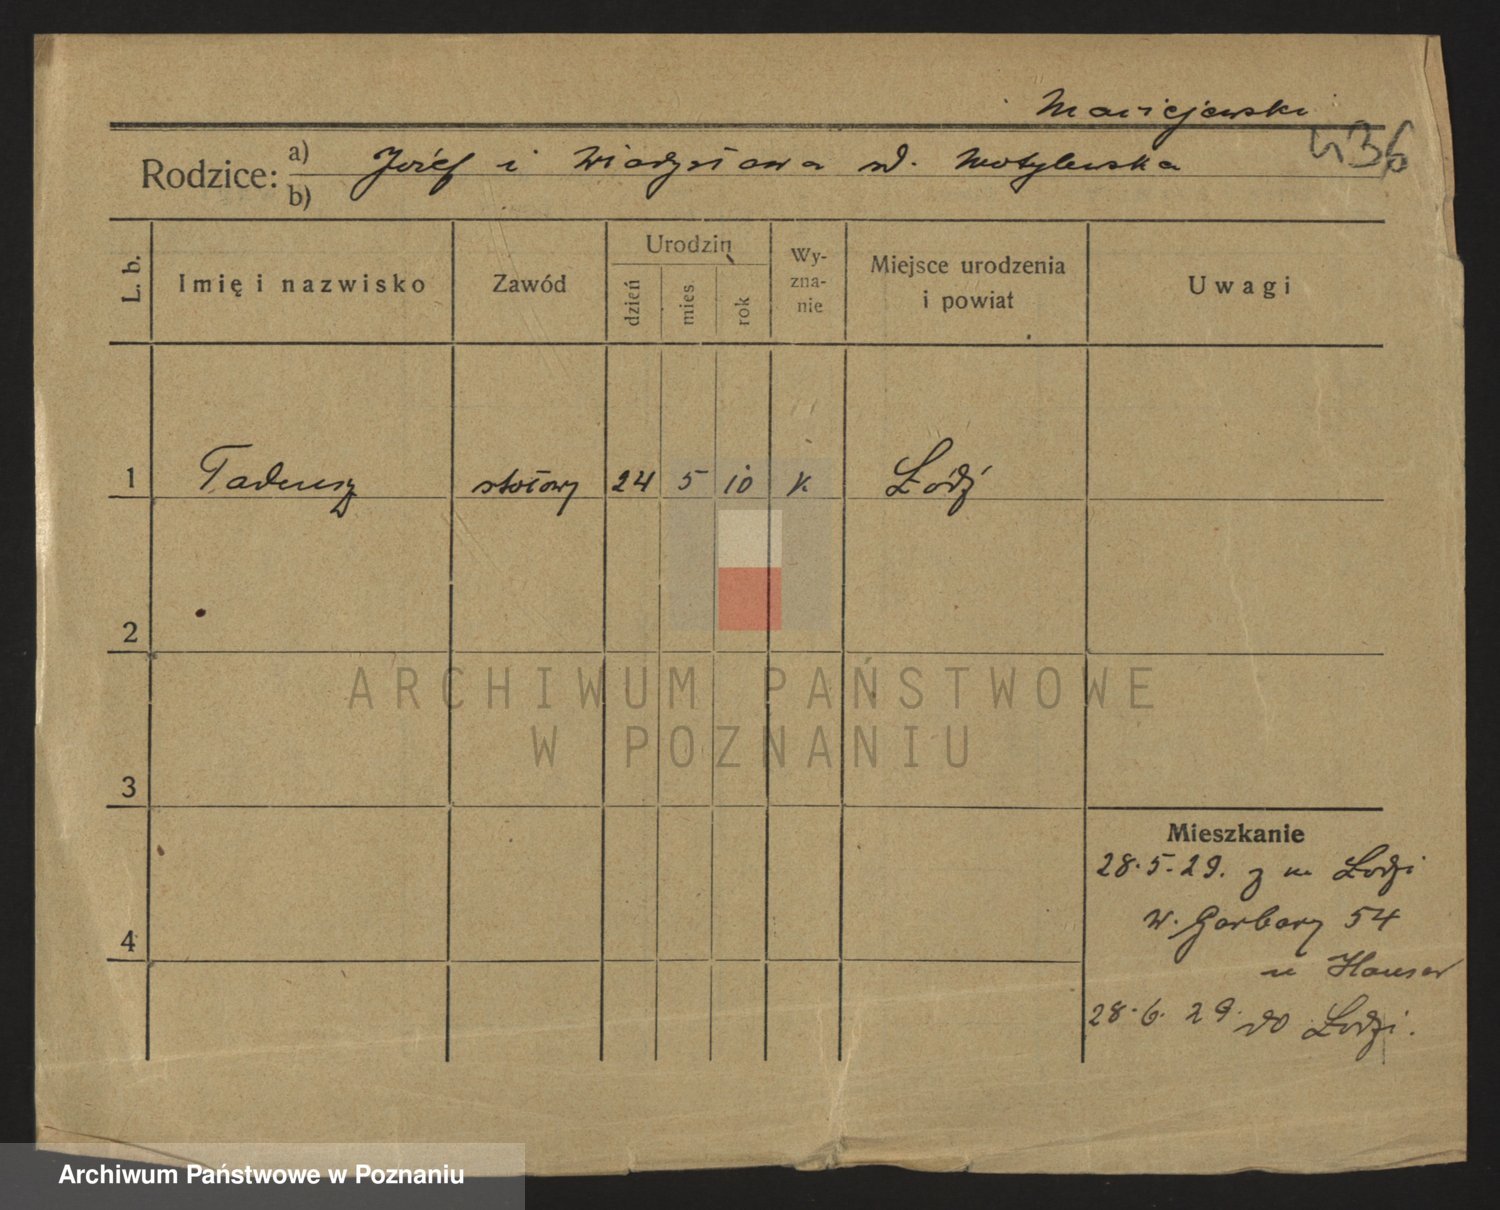 Maciejewski
436
Rodzice: a) b) Józef i Władysława zd. Motylewska
L. b.
Imię i nazwisko
Zawód
Urodzin
dzień
mies
rok
Wy-
zna-
nie
Miejsce urodzenia
i powiat
Uwagi
1 Tadeusz stołowy 24 5 10 k Łódź
2
3
4
Mieszkanie
28.5.29. z m Łodzi
W. Garbary 54
u Hauser
28.6.29. do Łodzi.
ARCHIWUM PAŃSTWOWE
W POZNANIU
Archiwum Państwowe w Poznaniu